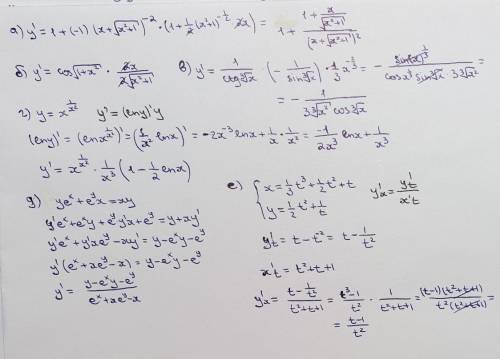 а) y' = 1 + (-1) (x + √(x²+1))⁻² · (1 + 1/2 (x²+1)^(-1/2) · 2x) = 1 + (1 + x/√(x²+1))/(x + √(x²+1))²
б) y' = cos√(1+x²) · 2x/(2√(x²+1))
в) y' = 1/(ctg ∛x) · (- 1/(sin² ∛x)) · 1/3 x^(-2/3) = - =
= - 1/(3 ∛x² cos ∛x)
г) y = x^(1/x²) y' = (ln y)' · y
(ln y)' = (ln x^(1/x²))' = (1/x² ln x)' = -2x⁻³ ln x + 1/x · 1/x² = -1/(2x³) ln x + 1/x³
y' = x^(1/x²) · 1/x³ (1 - 1/2 ln x)
д) yeˣ + eʸx = xy
y'eˣ + eˣy + eʸy'x + eʸ = y + xy'
y'eˣ + y'xeʸ - xy' = y - eˣy - eʸ
y'(eˣ + xeʸ - x) = y - eˣy - eʸ
y' = (y - eˣy - eʸ)/(eˣ + xeʸ - x)
е) { x = 1/3 t³ + 1/2 t² + t
y = 1/2 t² + 1/t
y'x = y't/x't
y't = t - t⁻² = t - 1/t²
x't = t² + t + 1
y'x = (t - 1/t²)/(t² + t + 1) = (t³ - 1)/t² · 1/(t² + t + 1) = (t-1)(t²+t+1)/(t²(t²+t+1)) =
= (t-1)/t²